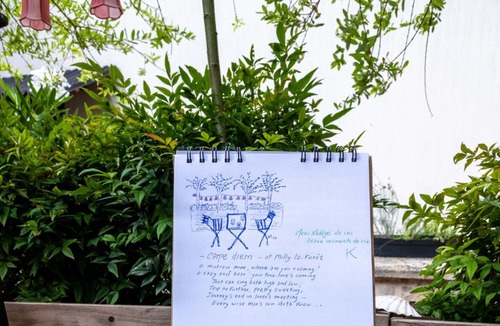 - carpe diem - at Milly-la-Forêt
O mistress mine, where are you roaming?
O stay and hear: your true love's coming
That can sing both high and low,
Trip no further, pretty sweeting,
Journeys end in lovers meeting -
Every wise man's son doth know...
de ces
K